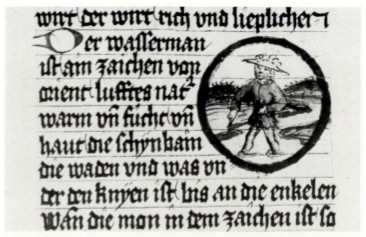 wirt der wirt rich vnd lieplicher
Der wasserman
ist ain zaichen von
orient lufftes nat
warm vñ fücht vñ
haut die schynbain
die waden vnd was vn
der den knyen ist bis an die enkelen
Wan die mon in dem zaichen ist so